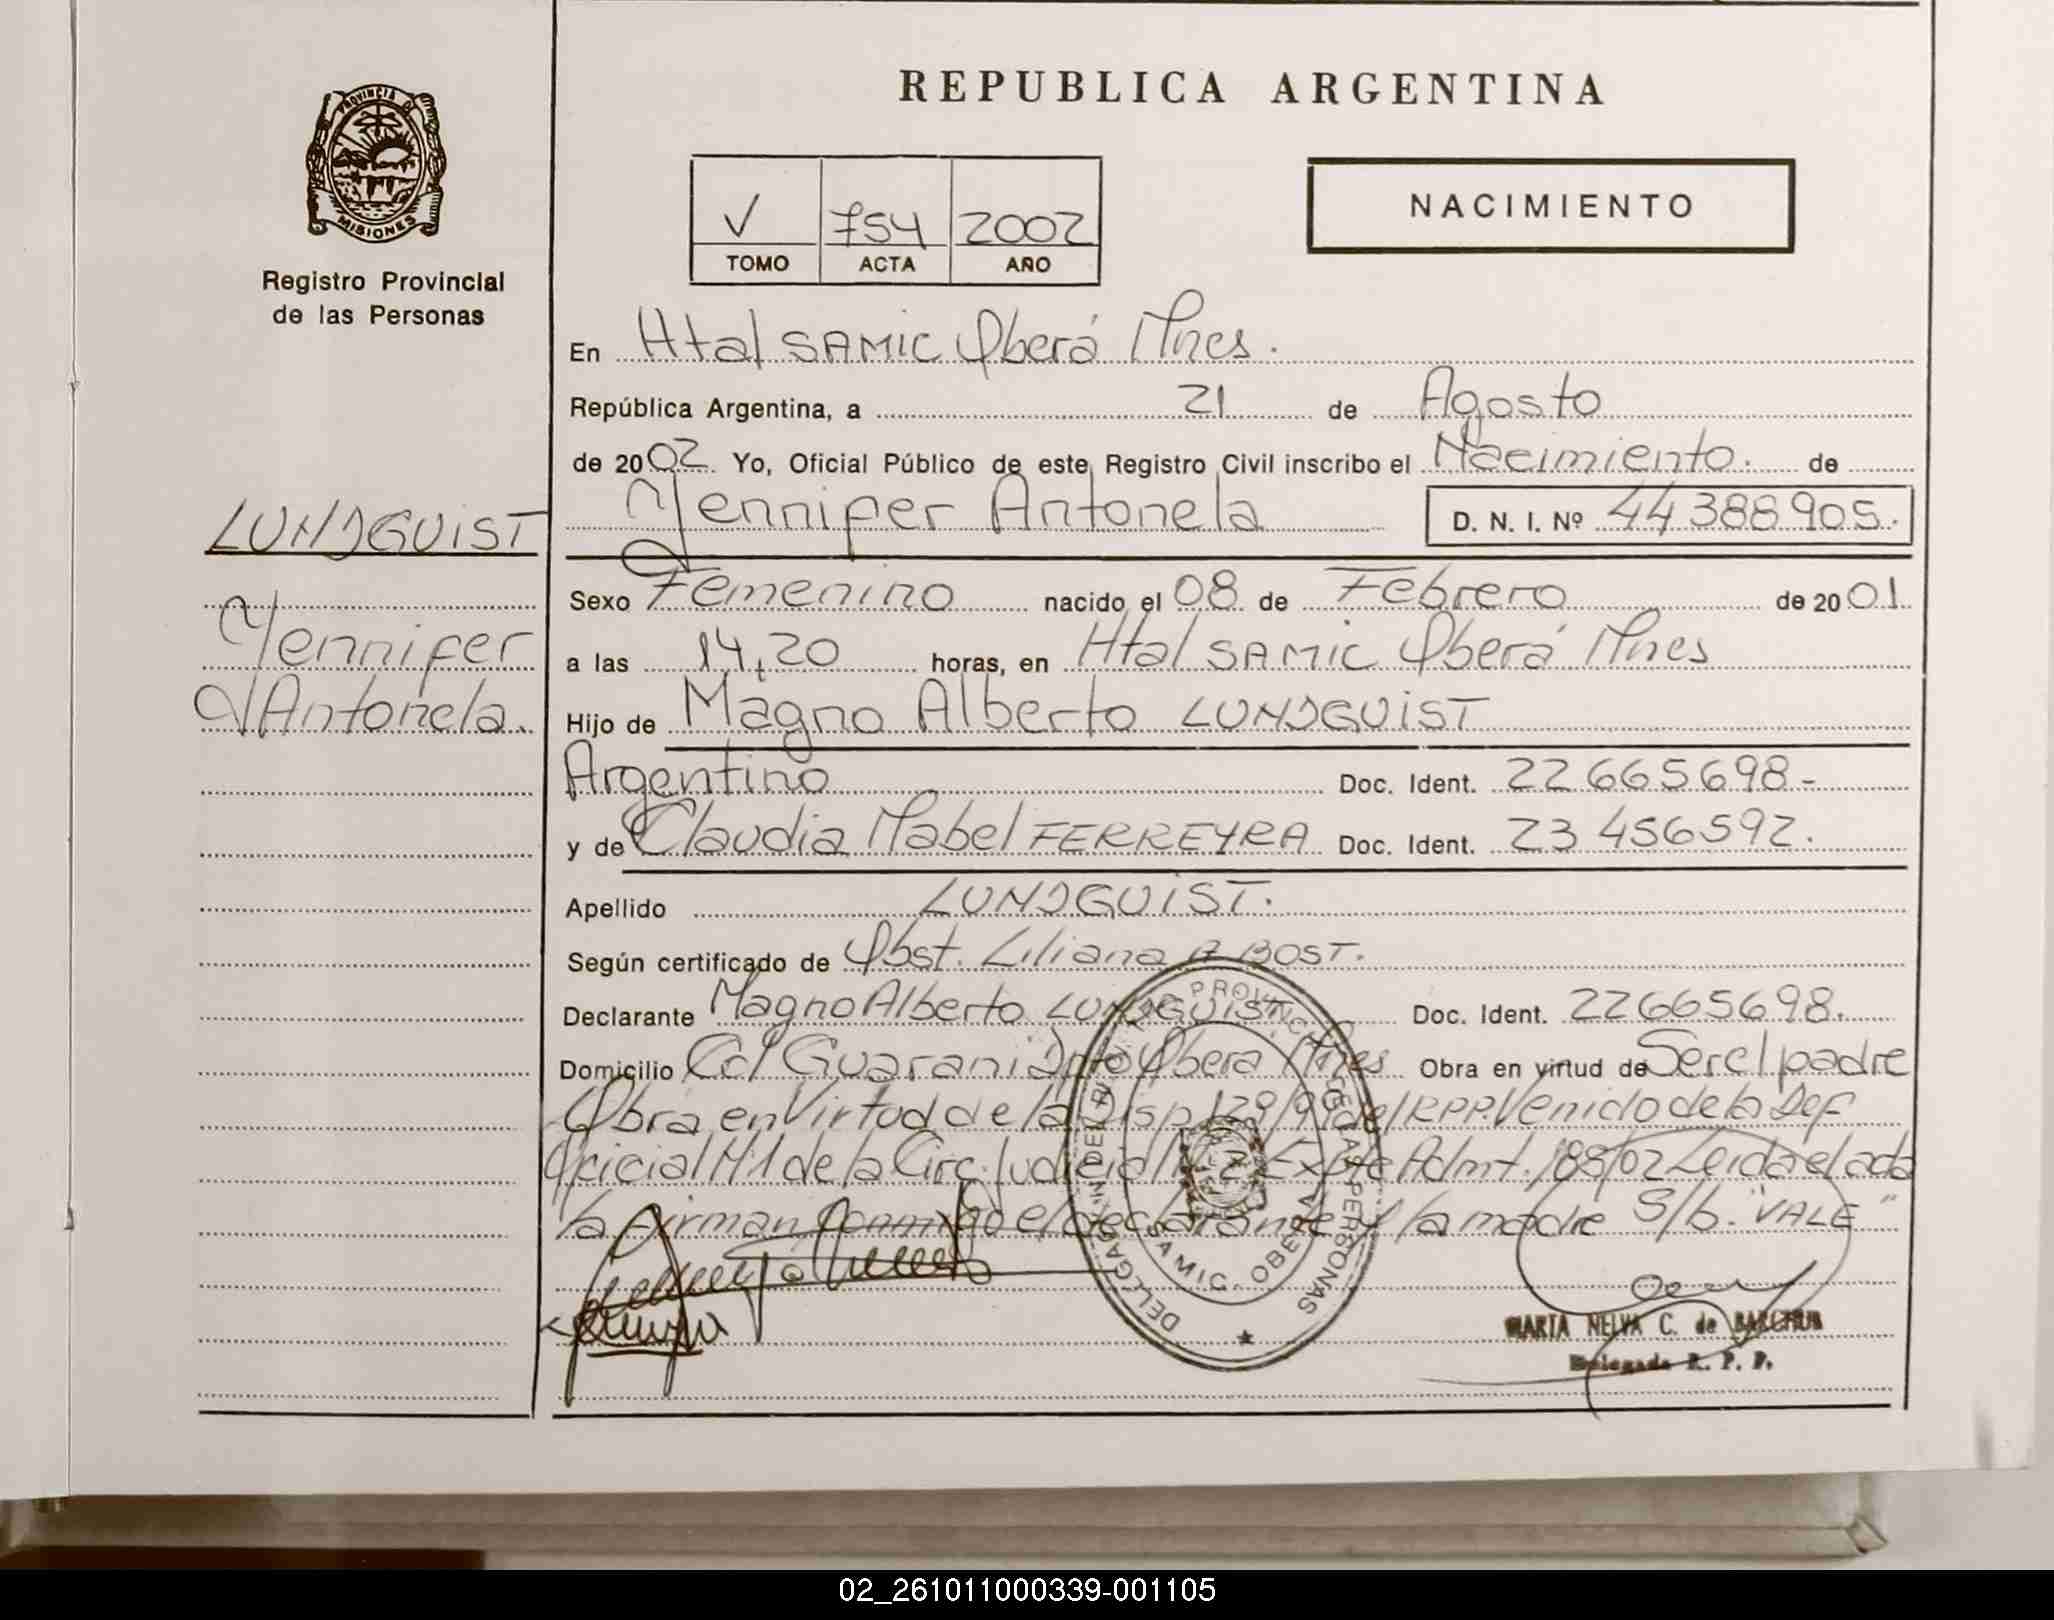 REPUBLICA ARGENTINA
PROVINCIA D
MISIONES
Registro Provincial
de las Personas
NACIMIENTO
V 754 2002
TOMO ACTA AÑO
En Htal SAMIC Oberá Mnes.
República Argentina, a 21 de Agosto
de 2002. Yo, Oficial Público de este Registro Civil inscribo el Nacimiento. de
Yennifer Antonela D. N. I. Nº 44 388 905.
LUNDGUIST
Yennifer
Antonela.
Sexo Femenino nacido el 08 de Febrero de 2001.
a las 14,20 horas, en Htal SAMIC Oberá Mnes
Hijo de Magno Alberto LUNDGUIST
Argentino Doc. Ident. 22 665 698-
y de Claudia Mabel FERREYRA Doc. Ident. 23 456592.
Apellido LUNDGUIST.
Según certificado de Obst. Liliana A BOST.
Declarante Magno Alberto LUNDGUIST Doc. Ident. 22665698.
Domicilio Col Guarani Dpto Obera Mnes Obra en virtud de Ser el padre
Obra en Virtud de la Disp 129/99 del R.P.P. Venido de la Def
Oficial N1 de la Circ. Judicial Nº 2 Expte Admt. 188/02 Leida el acta
la firman conmigo el declarante y la madre S/b. "VALE"
DELEGACION DEL REGISTRO PROVINCIAL DE LAS PERSONAS
SAMIC. OBERA
MARTA NELVA C. de
Delegada R. P. P.
02_261011000339-001105